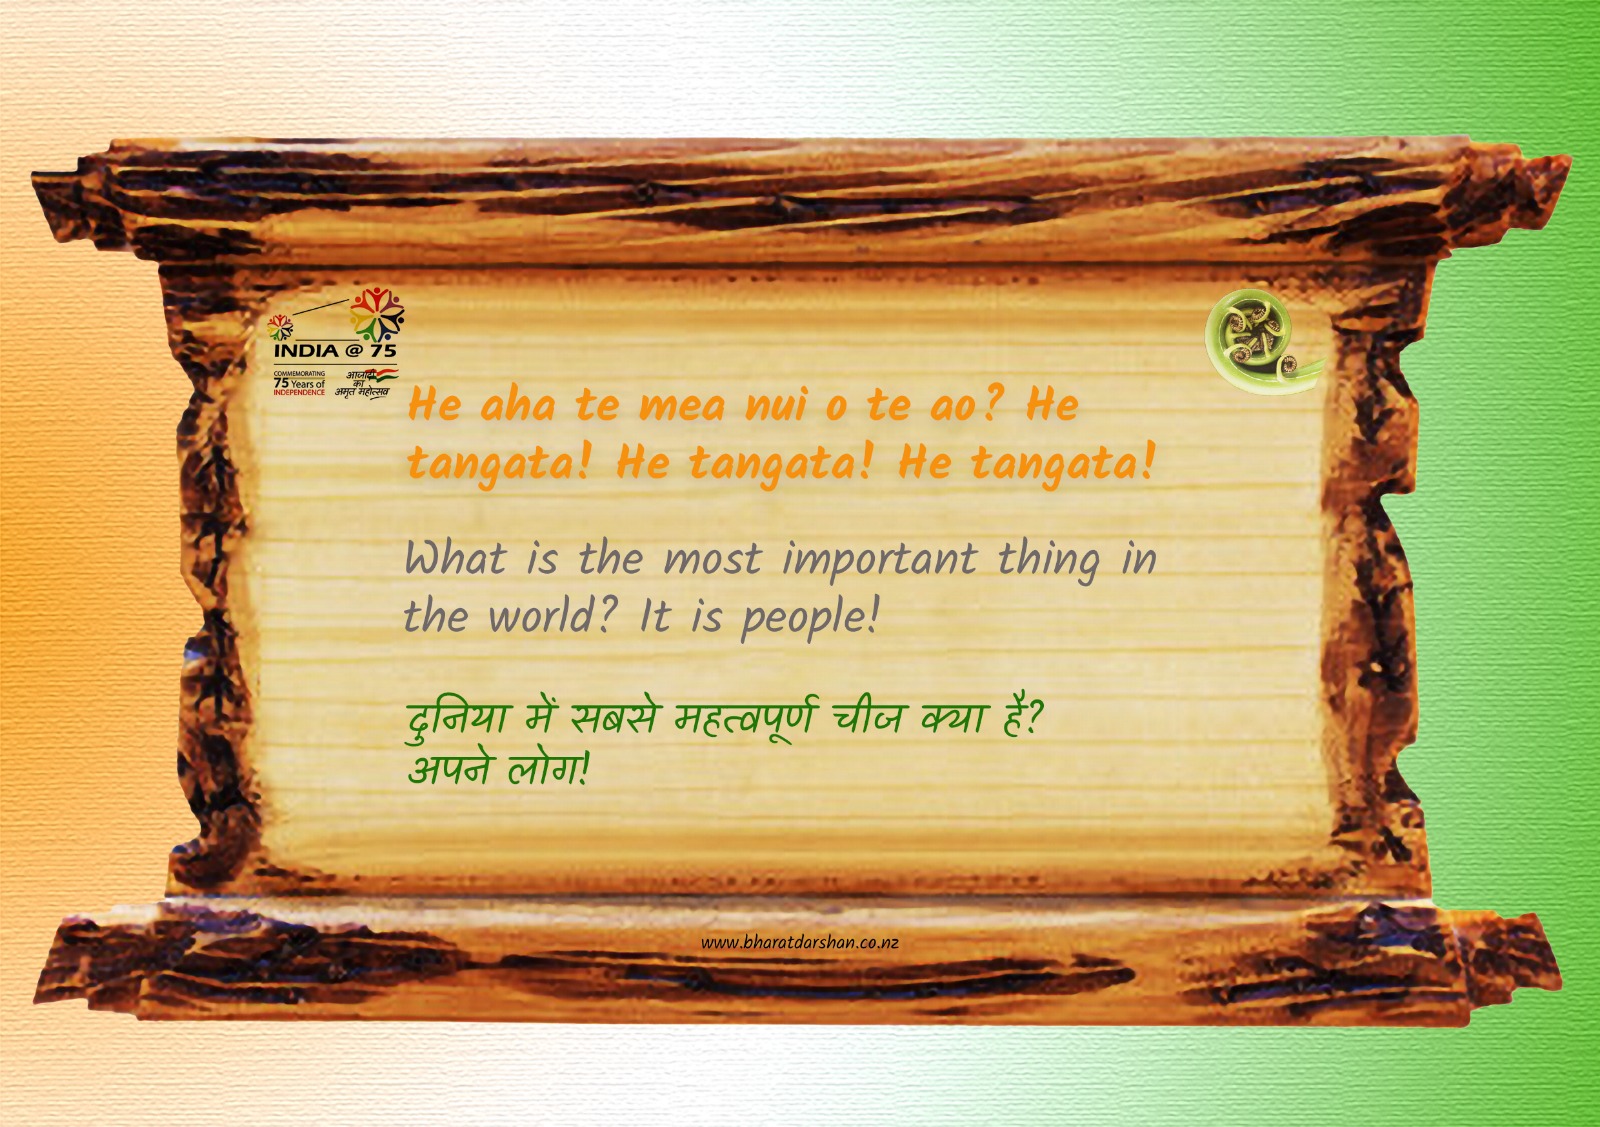 INDIA @ 75
COMMEMORATING
75 Years of
INDEPENDENCE
आज़ादी
का
अमृत महोत्सव
He aha te mea nui o te ao? He
tangata! He tangata! He tangata!
What is the most important thing in
the world? It is people!
दुनिया में सबसे महत्वपूर्ण चीज क्या है?
अपने लोग!
www.bharatdarshan.co.nz